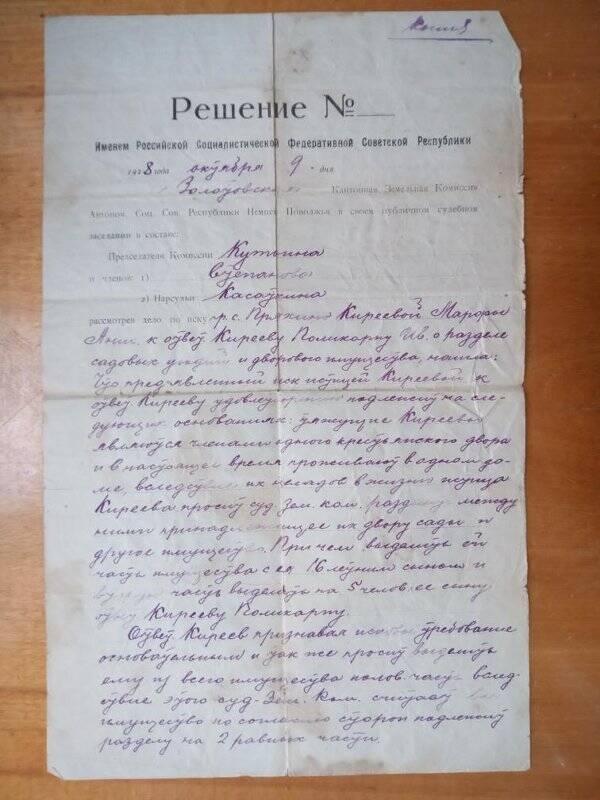 Копия
Решение №
Именем Российской Социалистической Федеративной Советской Республики
1928 года октября 9 дня
Золотовская Кантонная Земельная Комиссия
Автоном. Соц. Сов. Республики Немцев Поволжья в своем публичном судебном
заседании в составе:
Председателя Комиссии Кутьина
и членов: 1) Степанова
2) Нарсудьи Касаткина
рассмотрев дело по иску гр. с. Пряхино Киреевой Марфы
к ответ Кирееву Поликарпу Ив. о разделе
садовых угодий и дворового имущества, нашла:
Что предъявленный иск истицей Киреевой к
ответ Кирееву удовлетворению подлежит на сле-
дующих основаниях: тяжущиеся Киреевы
являются членами одного крестьянского двора
и в настоящее время проживают в одном до-
ме, вследствие их неладов в жизни истица
Киреева просит суд. Зем. ком. разделу между
ними принадлежащее их двору сады и
другое имущество. При чем выделить ей
часть имущества с ея 16 летним сыном и
часть выделить на 5 челов. ее сыну
ответ Кирееву Поликарпу.
Ответ Киреев признавая исковое требование
основательным и так же просит выделить
ему из всего имущества полов. часть вслед-
ствие этого суд-Зем. Ком. считает
имущество по согласию сторон подлежит
разделу на 2 равных части.